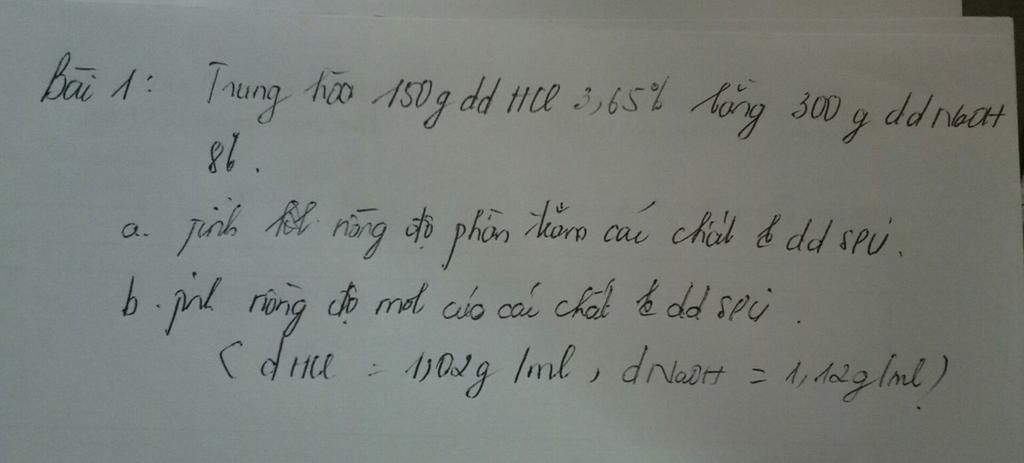 Bài 1: Trung hòa 150g dd HCl 3,65% bằng 300 g dd NaOH
8%.
a. Tính nồng độ phần trăm các chất dd SPƯ.
b. Tính nồng độ mol của các chất dd SPƯ.
( dHCl = 1,02g/ml, dNaOH = 1,12g/ml)